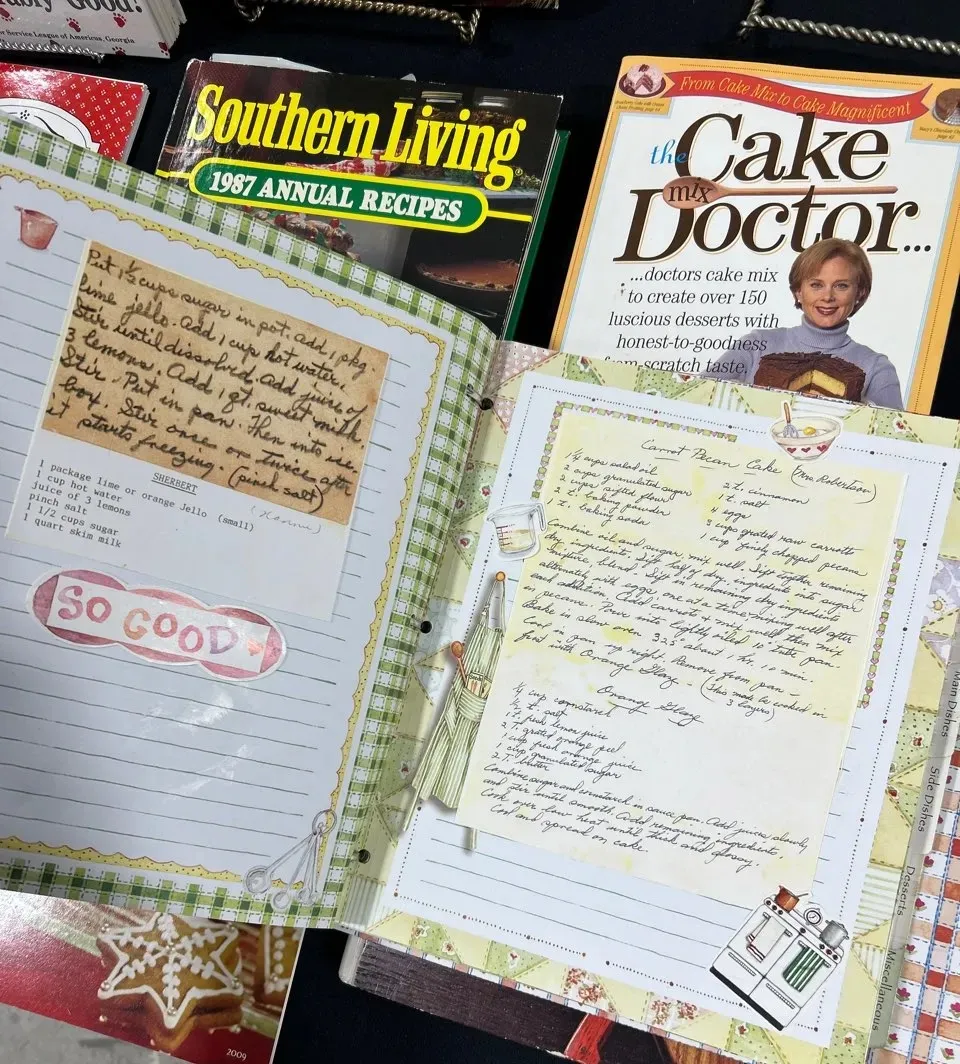 ably Good!
or Service League of Americus, Georgia
Southern Living
1987 ANNUAL RECIPES
From Cake Mix to Cake Magnificent
the Cake
mix
Doctor...
...doctors cake mix
to create over 150
luscious desserts with
honest-to-goodness
from-scratch taste.
Put 1 1/2 cups sugar in pot. add 1 pkg.
lime jello. Add 1 cup hot water.
Stir until dissolved. Add juice of
3 lemons. Add 1 qt. sweet milk
Stir. Put in pan. Then into ice
box. Stir once or twice after
it starts freezing. (pinch salt)
SHERBERT
1 package lime or orange Jello (small)
1 cup hot water
juice of 3 lemons
pinch salt
1 1/2 cups sugar
1 quart skim milk
SO GOOD
Carrot Pecan Cake (Mrs Robertson)
1 1/4 cups salad oil
2 cups granulated sugar
2 cups sifted flour
2 t. baking powder
1 t. baking soda
2 t. cinnamon
1 t. salt
4 eggs
3 cups grated raw carrots
1 cup finely chopped pecans
Combine oil and sugar, mix well. Sift together remaining
dry ingredients. Sift half of dry ingredients into sugar
mixture, blend. Sift in remaining dry ingredients
alternately with eggs one at a time mixing well after
each addition. Add carrots & mix well then mix
in pecans. Pour into lightly oiled 10 tube pan.
Bake in slow oven 325° about 1 hr. 10 min.
Cool in pan up right. Remove from pan -
with Orange Glaze. (This may be cooked in
3 layers)
Orange Glaze
1/4 cup cornstarch
1/2 t. salt
1 t. fresh lemon juice
2 T. grated orange peel
1 cup fresh orange juice
1 cup granulated sugar
2 T. butter
Combine sugar and cornstarch in sauce pan. Add juices slowly
and stir until smooth. Add remaining ingredients.
Cook over low heat until thick and glossy.
Cool and spread on cake.
Main Dishes
Side Dishes
Desserts
Miscellaneous
2009